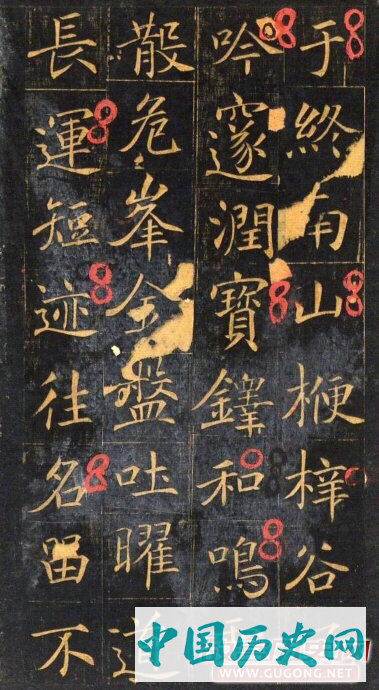 于終南山楩梓谷
吟邃潤寶鐸和鳴
散危峯金盤吐曜
長運短迹往名留不
中国历史网
WWW.GUGONG.NET